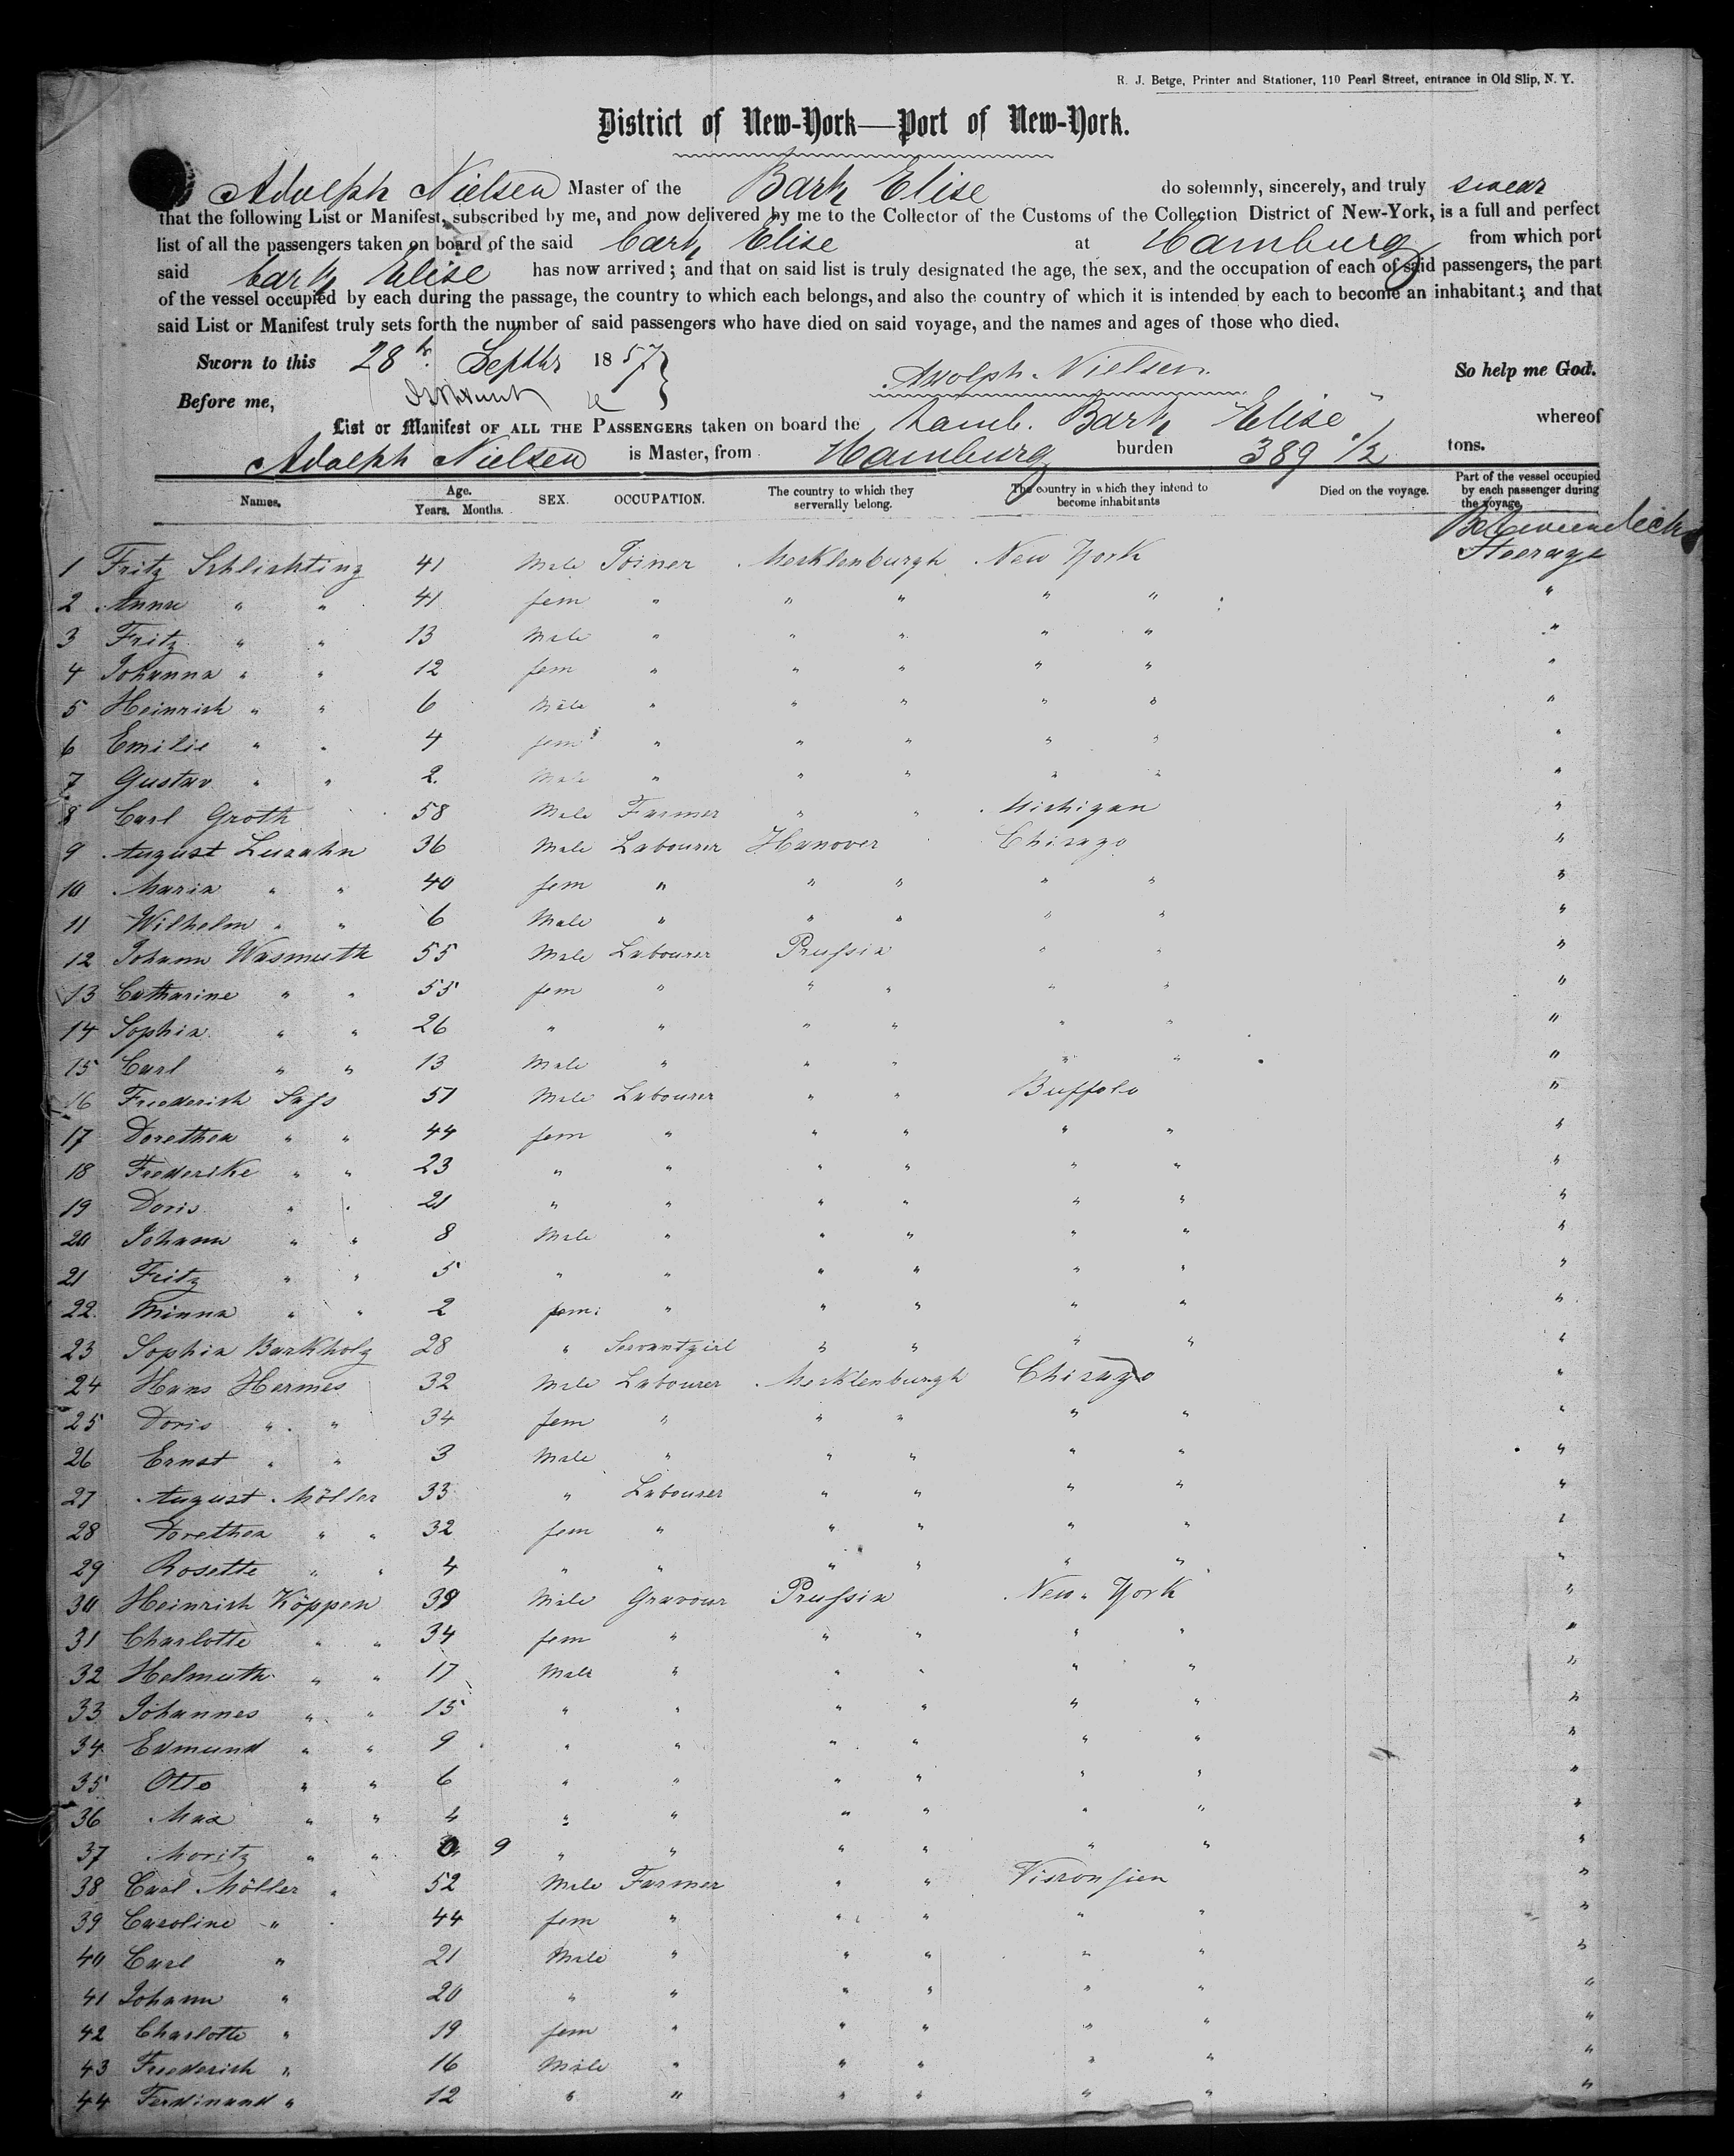 R. J. Betge, Printer and Stationer, 110 Pearl Street, entrance in Old Slip, N. Y.
District of New-York—Port of New-York.
Adolph Nielsen Master of the Bark Elise do solemnly, sincerely, and truly swear
that the following List or Manifest, subscribed by me, and now delivered by me to the Collector of the Customs of the Collection District of New-York, is a full and perfect
list of all the passengers taken on board of the said bark Elise at Hamburg from which port
said bark Elise has now arrived; and that on said list is truly designated the age, the sex, and the occupation of each of said passengers, the part
of the vessel occupied by each during the passage, the country to which each belongs, and also the country of which it is intended by each to become an inhabitant; and that
said List or Manifest truly sets forth the number of said passengers who have died on said voyage, and the names and ages of those who died.
Sworn to this 28th Septbr 1857 } Adolph Nielsen. So help me God.
Before me,
List or Manifest OF ALL THE PASSENGERS taken on board the Hamb. Bark "Elise" whereof
Adolph Nielsen is Master, from Hamburg burden 389 1/2 tons.
Names. Age. Years. Months. SEX. OCCUPATION. The country to which they serverally belong. The country in which they intend to become inhabitants Died on the voyage. Part of the vessel occupied by each passenger during the voyage.
1 Fritz Schlichting 41 Male Joiner Mecklenburgh New York Steerage
2 Anna " " 41 fem " " " " " "
3 Fritz " " 13 Male " " " " " "
4 Johanna " " 12 fem " " " " " "
5 Heinrich " " 6 Male " " " " " "
6 Emilie " " 4 fem " " " " " "
7 Gustav " " 2. Male " " " " " "
8 Carl Groth 58 Male Farmer " " Michigan "
9 August Lusahn 36 Male Labourer Hanover Chicago "
10 Maria " " 40 fem " " " " " "
11 Wilhelm " " 6 Male " " " " " "
12 Johann Wasmuth 55 Male Labourer Prussia " " "
13 Catharine " " 55 fem " " " " " "
14 Sophia " " 26 " " " " " " "
15 Carl " " 13 Male " " " " " "
16 Friederich Sass 51 Male Labourer " " Buffolo "
17 Dorethea " " 44 fem " " " " " "
18 Frederike " " 23 " " " " " " "
19 Doris " " 21 " " " " " " "
20 Johann " " 8 Male " " " " " "
21 Fritz " " 5 " " " " " " "
22. Minna " " 2 fem. " " " " " "
23 Sophia Barkholz 28 " Servantgirl " " " " "
24 Hans Hermes 32 Male Labourer Mecklenburgh Chicago "
25 Doris " " 34 fem " " " " " "
26 Ernst " " 3 Male " " " " " "
27 August Möller 33 " Labourer " " " " "
28 Dorethea " " 32 fem " " " " " "
29 Rosette " " 4 " " " " " " "
30 Heinrich Köppen 39 Male Gravour Prussia New York "
31 Charlotte " " 34 fem " " " " " "
32 Helmuth " " 17 Male " " " " " "
33 Johannes " " 15 " " " " " " "
34 Edmund " " 9 " " " " " " "
35 Otto " " 6 " " " " " " "
36 Max " " 4 " " " " " " "
37 Moritz " " 0 9 " " " " " " "
38 Carl Möller " 52 Male Farmer " " Visconsien "
39 Caroline " 44 fem " " " " " "
40 Carl " 21 Male " " " " " "
41 Johann " 20 " " " " " " "
42 Charlotte " 19 fem " " " " " "
43 Friederich " 16 Male " " " " " "
44 Ferdinand " 12 " " " " " " "